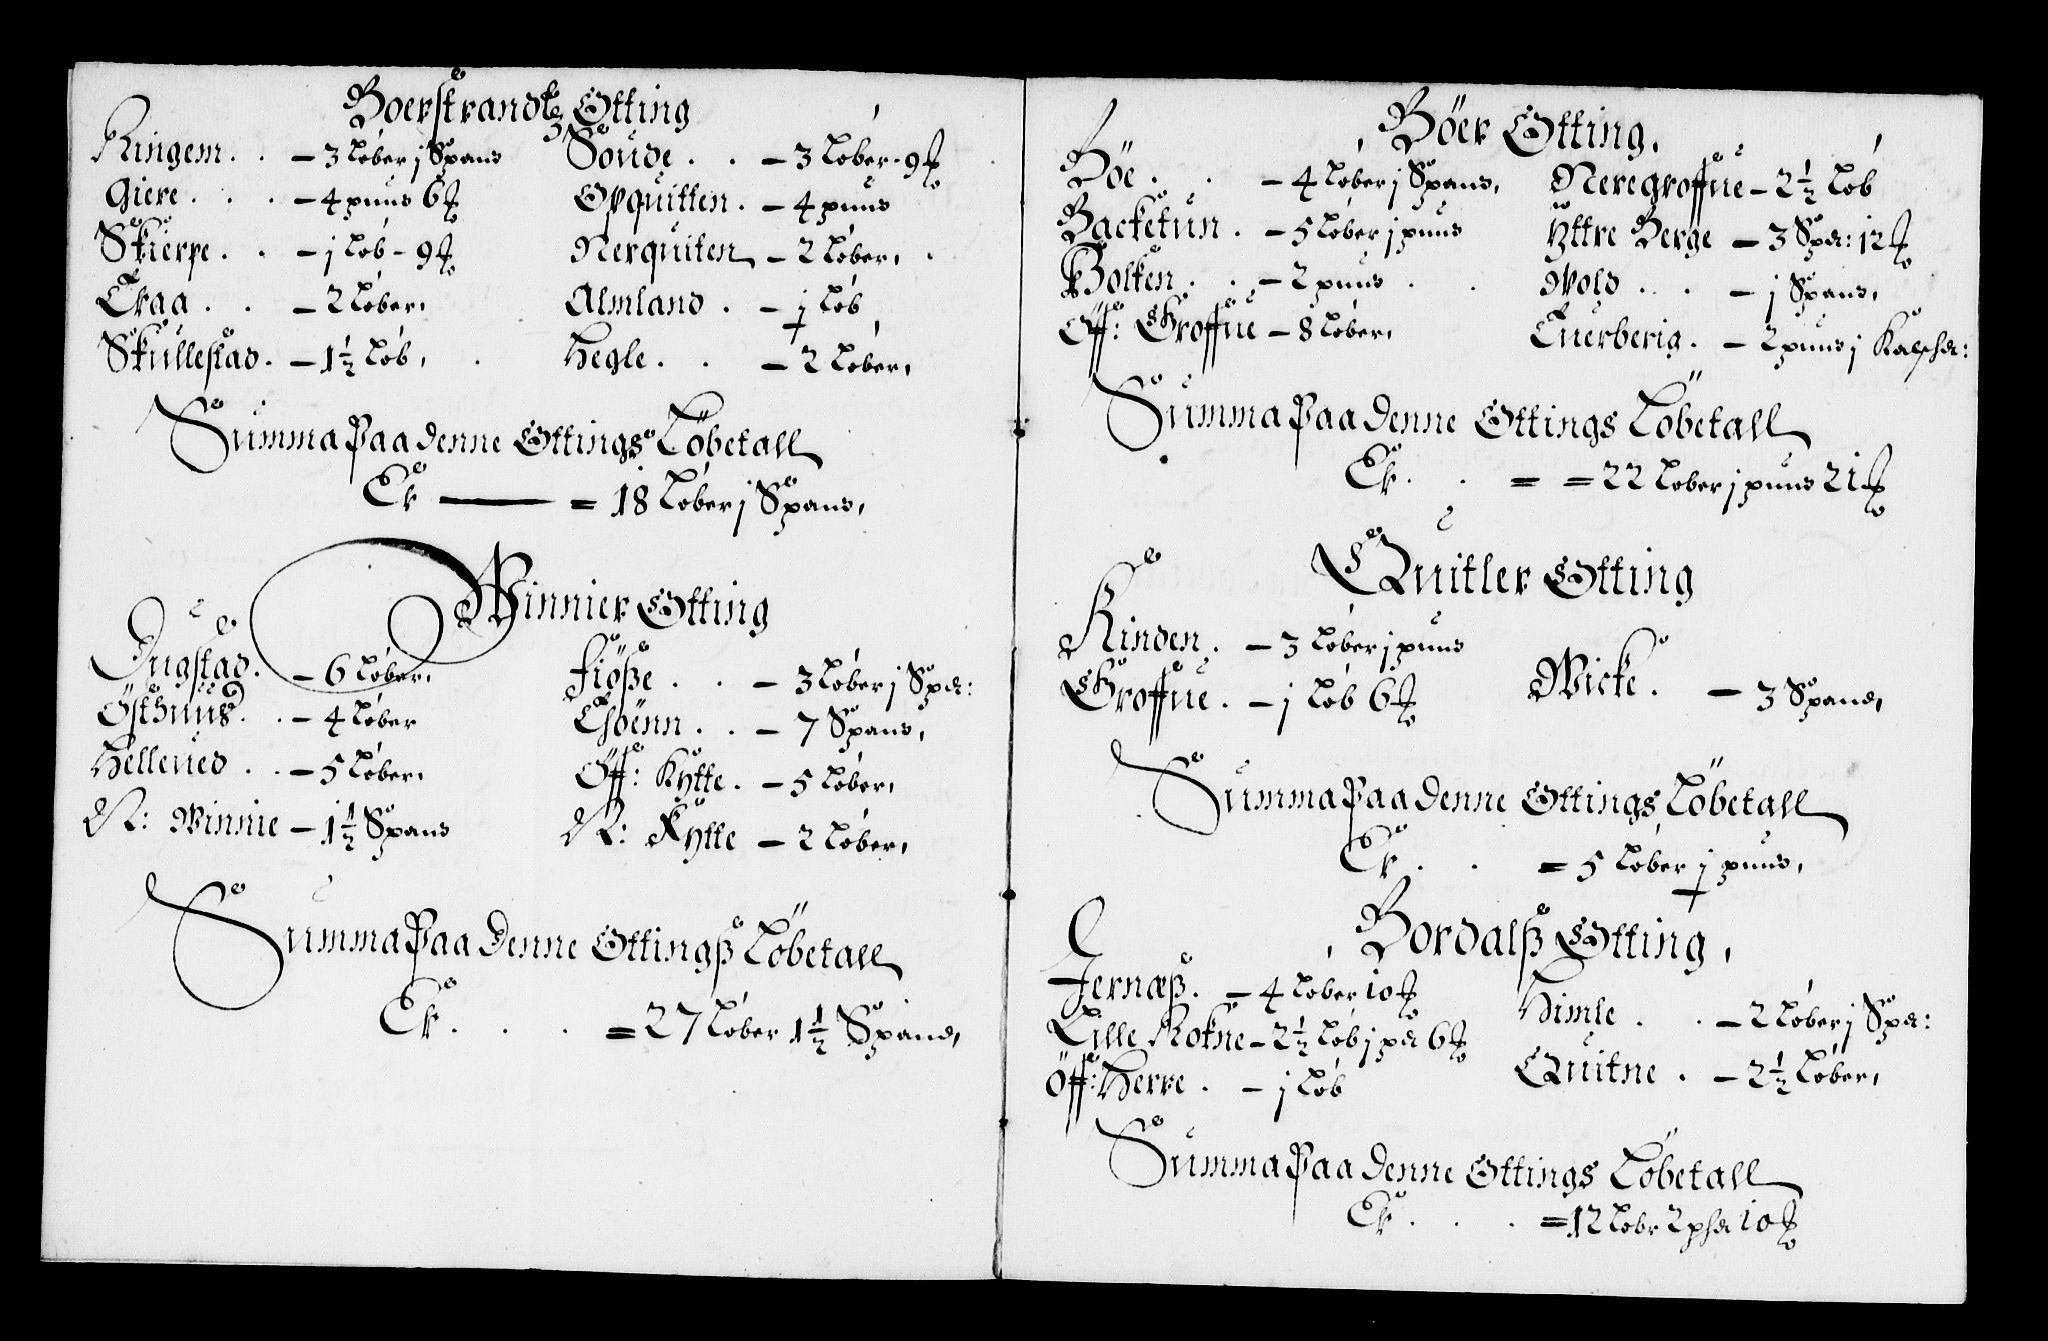 Boerstrandtz Otting
Ringem . . – 3 Løber j Spans
Giere . . . – 4 puns 6 ℔
Skierpe . . – j Løb – 9 ℔
Ekaa . . – 2 Løber,
Skullestad . – 1½ Løb,
Soude . . – 3 Løber – 9 ℔
Opquitten . – 4 puns
Nerquiten – 2 Løber,
Almland . – j Løb
Hegle . . – 2 Løber,
Summa Paa denne Ottings Løbetall
Er — = 18 Løber j Spans,
Winnier Otting
Dugstad . – 6 Løber,
Østhuus . . – 4 Løber
Helleued . . – 5 Løber,
N: Winnie – 1½ Spans
Fiøße . . – 3 Løber j Spa:
Esøenn . . – 7 Spans,
Øff: Kytte . – 5 Løber,
N: Kytte – 2 Løber,
Summa Paa denne Ottingß Løbetall
Er . . . = 27 Løber 1½ Spand,
Böer Otting,
Böe . . – 4 Løber j Spans,
Backetun . – 5 Løber j puns
Bolken . . – 2 puns
Øff: Groffue – 8 Løber,
Neregroffue – 2½ Løb
Yttre Berge – 3 Spa: 12 ℔
Wold . . – j Spans,
Tuerberig . – 2 puns j Kalfsk:
Summa Paa denne Ottings Löbetall
Er . . = = 22 Løber j puns 21 ℔
Quitler Otting
Rinden . – 3 Løber j puns
Groffue . – j Løb 6 ℔
Wicke . – 3 Spand,
Summa Paa denne Ottings Löbetall
Er . . = 5 Løber j puns,
Bordalß Otting,
Jernæß . – 4 Løber 10 ℔
Lille Rokne – 2½ Løb j pd 6 ℔
Øff: Herre . – j Løb
Himle . . – 2 Løber j Spa:
Quitne . – 2½ Løber,
Summa Paa denne Ottings Löbetall
Er . . . = 12 Løbr 2 pd 10 ℔